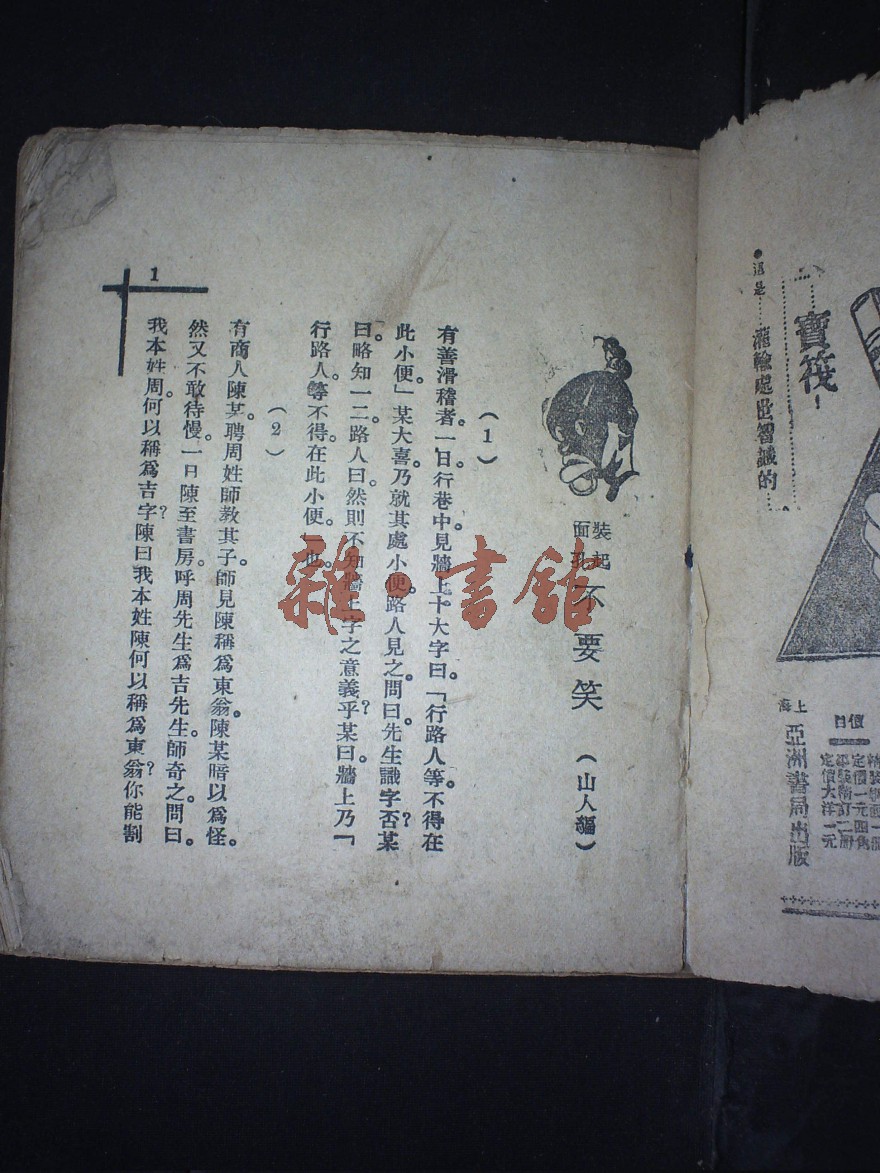 寶筏
這是……灌輸處世智識的……
上海
亞洲書局出版
價目
定價一元四角
定價大洋一元
裝起面孔
不要笑
(山人編)
(1)
有善滑稽者。一日行巷中。見牆上十大字曰。「行路人等不得在
此小便。」某大喜。乃就其處小便。路人見之。問曰。先生識字否?某
曰。略知一二。路人曰。然則不知牆上字之意義乎?某曰。牆上乃「
行路人等不得在此小便。」也。
(2)
有商人陳某。聘周姓師教其子。師見陳稱爲東翁。陳某暗以爲怪。
然又不敢待慢。一日陳至書房。呼周先生爲吉先生。師奇之。問曰。
我本姓周。何以稱爲吉字?陳曰。我本姓陳。何以稱爲東翁?你能割
1
雜·書館